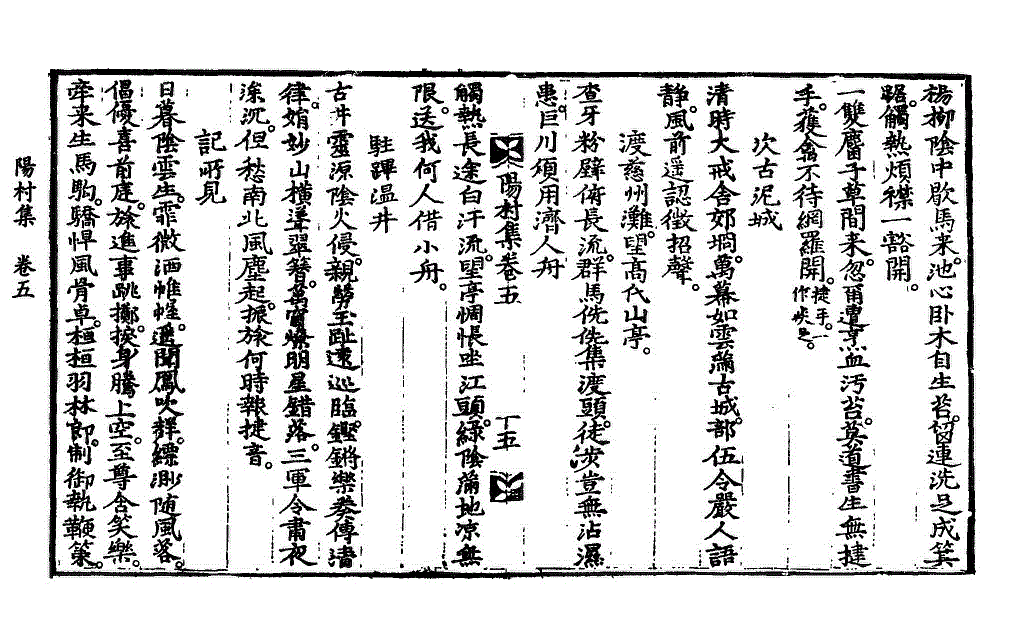 楊柳陰中歇馬來。池心卧木自生苔。留連洗足成箕
踞。觸熱煩襟一豁開。
一雙麕子草間來。忽爾遭烹血汚苔。莫道書生無捷
手。獲禽不待網羅開。捷手。一作疾足。
次古泥城
淸時大戒舍郊坰。萬幕如雲繞古城。部伍令嚴人語
靜。風前遥認徵招聲。
渡慈州灘。望高代山亭。
查牙粉壁俯長流。群馬侁侁集渡頭。徒步豈無沾濕
患。巨川須用濟人舟
陽村集卷五
十五
觸熱長途白汗流。望亭惆悵坐江頭。綠陰滿地凉無
限。送我何人借小舟。
駐蹕温井
古井靈源陰火侵。親勞玉趾遠巡臨。鏗鏘樂奏傳淸
律。娟妙山橫選翠簪。萬竈煥明星錯落。三軍令肅夜
深沉。但愁南北風塵起。振旅何時報捷音。
記所見
日暮陰雲生。霏微洒帷幄。遥聞鳳吹鮮。縹渺隨風落。
倡優喜前庭。旅進事跳擲。捩身騰上空。至尊含笑樂。
牽來生馬駒。驕悍風骨卓。桓桓羽林郞。制御執鞭策。
陽村集 卷五